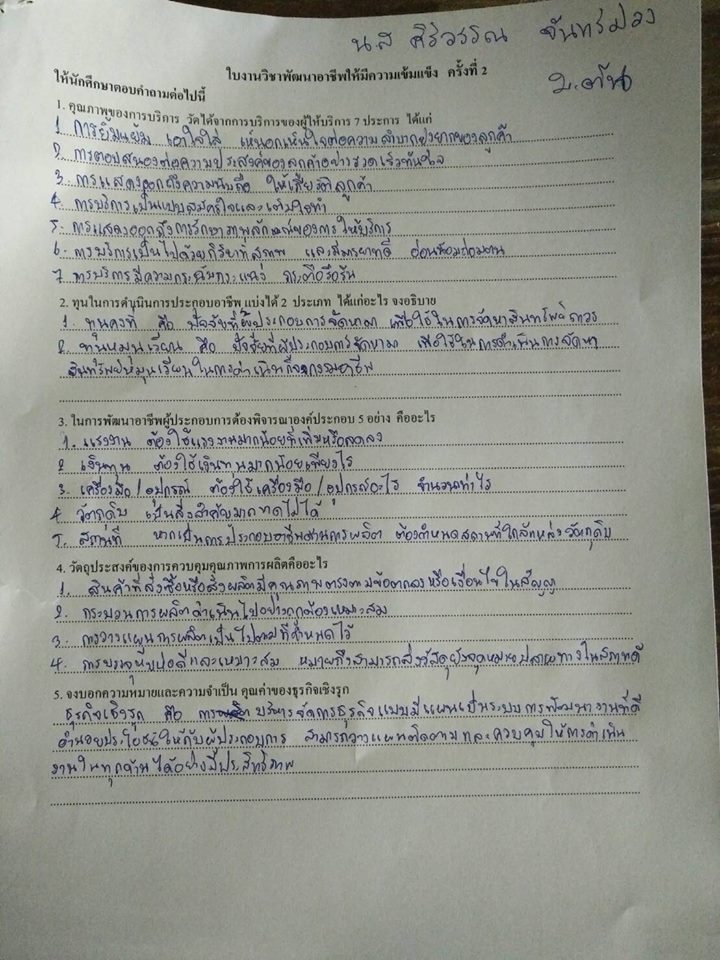 น.ส ศิริวรรณ จันทร์
ใบงานวิชาพัฒนาอาชีพให้มีความเข้มแข็ง ครั้งที่ 2
ให้นักศึกษาตอบคำถามต่อไปนี้
1. คุณภาพของการบริการ วัดได้จากการบริการของผู้ให้บริการ 7 ประการ ได้แก่
1. การยิ้มแย้ม เอาใจใส่ เห็นอกเห็นใจต่อความลำบากยุ่งยากของลูกค้า
2. การตอบสนองต่อความประสงค์ของลูกค้าอย่างรวดเร็วทันใจ
3. การแสดงออกถึงความนับถือ ให้เกียรติลูกค้า
4. การบริการเป็นแบบสมัครใจและเต็มใจทำ
5. การแสดงออกถึงการรักษาภาพลักษณ์ของการให้บริการ
6. การบริการเป็นไปด้วยกิริยาที่สุภาพ และมีมารยาทดี อ่อนน้อมถ่อมตน
7. การบริการมีความกระฉับกระเฉง กระตือรือร้น
2. ทุนในการดำเนินการประกอบอาชีพ แบ่งได้ 2 ประเภท ได้แก่อะไร จงอธิบาย
1. ทุนคงที่ คือ ปัจจัยที่ผู้ประกอบการจัดหามา เพื่อใช้ในการจัดหาสินทรัพย์ถาวร
2. ทุนหมุนเวียน คือ ปัจจัยที่ผู้ประกอบการจัดหามา เพื่อใช้ในการดำเนินการจัดหา
สินทรัพย์หมุนเวียนในการดำเนินกิจกรรมอาชีพ
3. ในการพัฒนาอาชีพผู้ประกอบการต้องพิจารณาองค์ประกอบ 5 อย่าง คืออะไร
1. แรงงาน ต้องใช้แรงงานมากน้อยที่เพิ่มหรือลดลง
2. เงินทุน ต้องใช้เงินทุนมากน้อยเพียงไร
3. เครื่องมือ/อุปกรณ์ ต้องใช้เครื่องมือ/อุปกรณ์อะไร จำนวนเท่าไร
4. วัตถุดิบ เป็นสิ่งสำคัญมากขาดไม่ได้
5. สถานที่ หากเป็นการประกอบอาชีพด้านการผลิต ต้องกำหนดสถานที่ใกล้แหล่งวัตถุดิบ
4. วัตถุประสงค์ของการควบคุมคุณภาพการผลิตคืออะไร
1. สินค้าที่สั่งซื้อหรือสั่งผลิตมีคุณภาพตรงตามข้อตกลงหรือเงื่อนไขในสัญญา
2. กระบวนการผลิตดำเนินไปอย่างถูกต้องเหมาะสม
3. การวางแผนการผลิตเป็นไปตามที่กำหนดไว้
4. การบรรจุหีบห่อดีและเหมาะสม หมายถึงสามารถส่งวัสดุยังจุดหมายปลายทางในสภาพดี
5. จงบอกความหมายและความจำเป็น คุณค่าของธุรกิจเชิงรุก
ธุรกิจเชิงรุก คือ การบริหารจัดการธุรกิจแบบมีแผนเป็นระบบการพัฒนางานที่ดี
อำนวยประโยชน์ให้กับผู้ประกอบการ สามารถวางแผนติดตามและควบคุมให้การดำเนิน
งานในทุกด้านได้อย่างมีประสิทธิภาพ